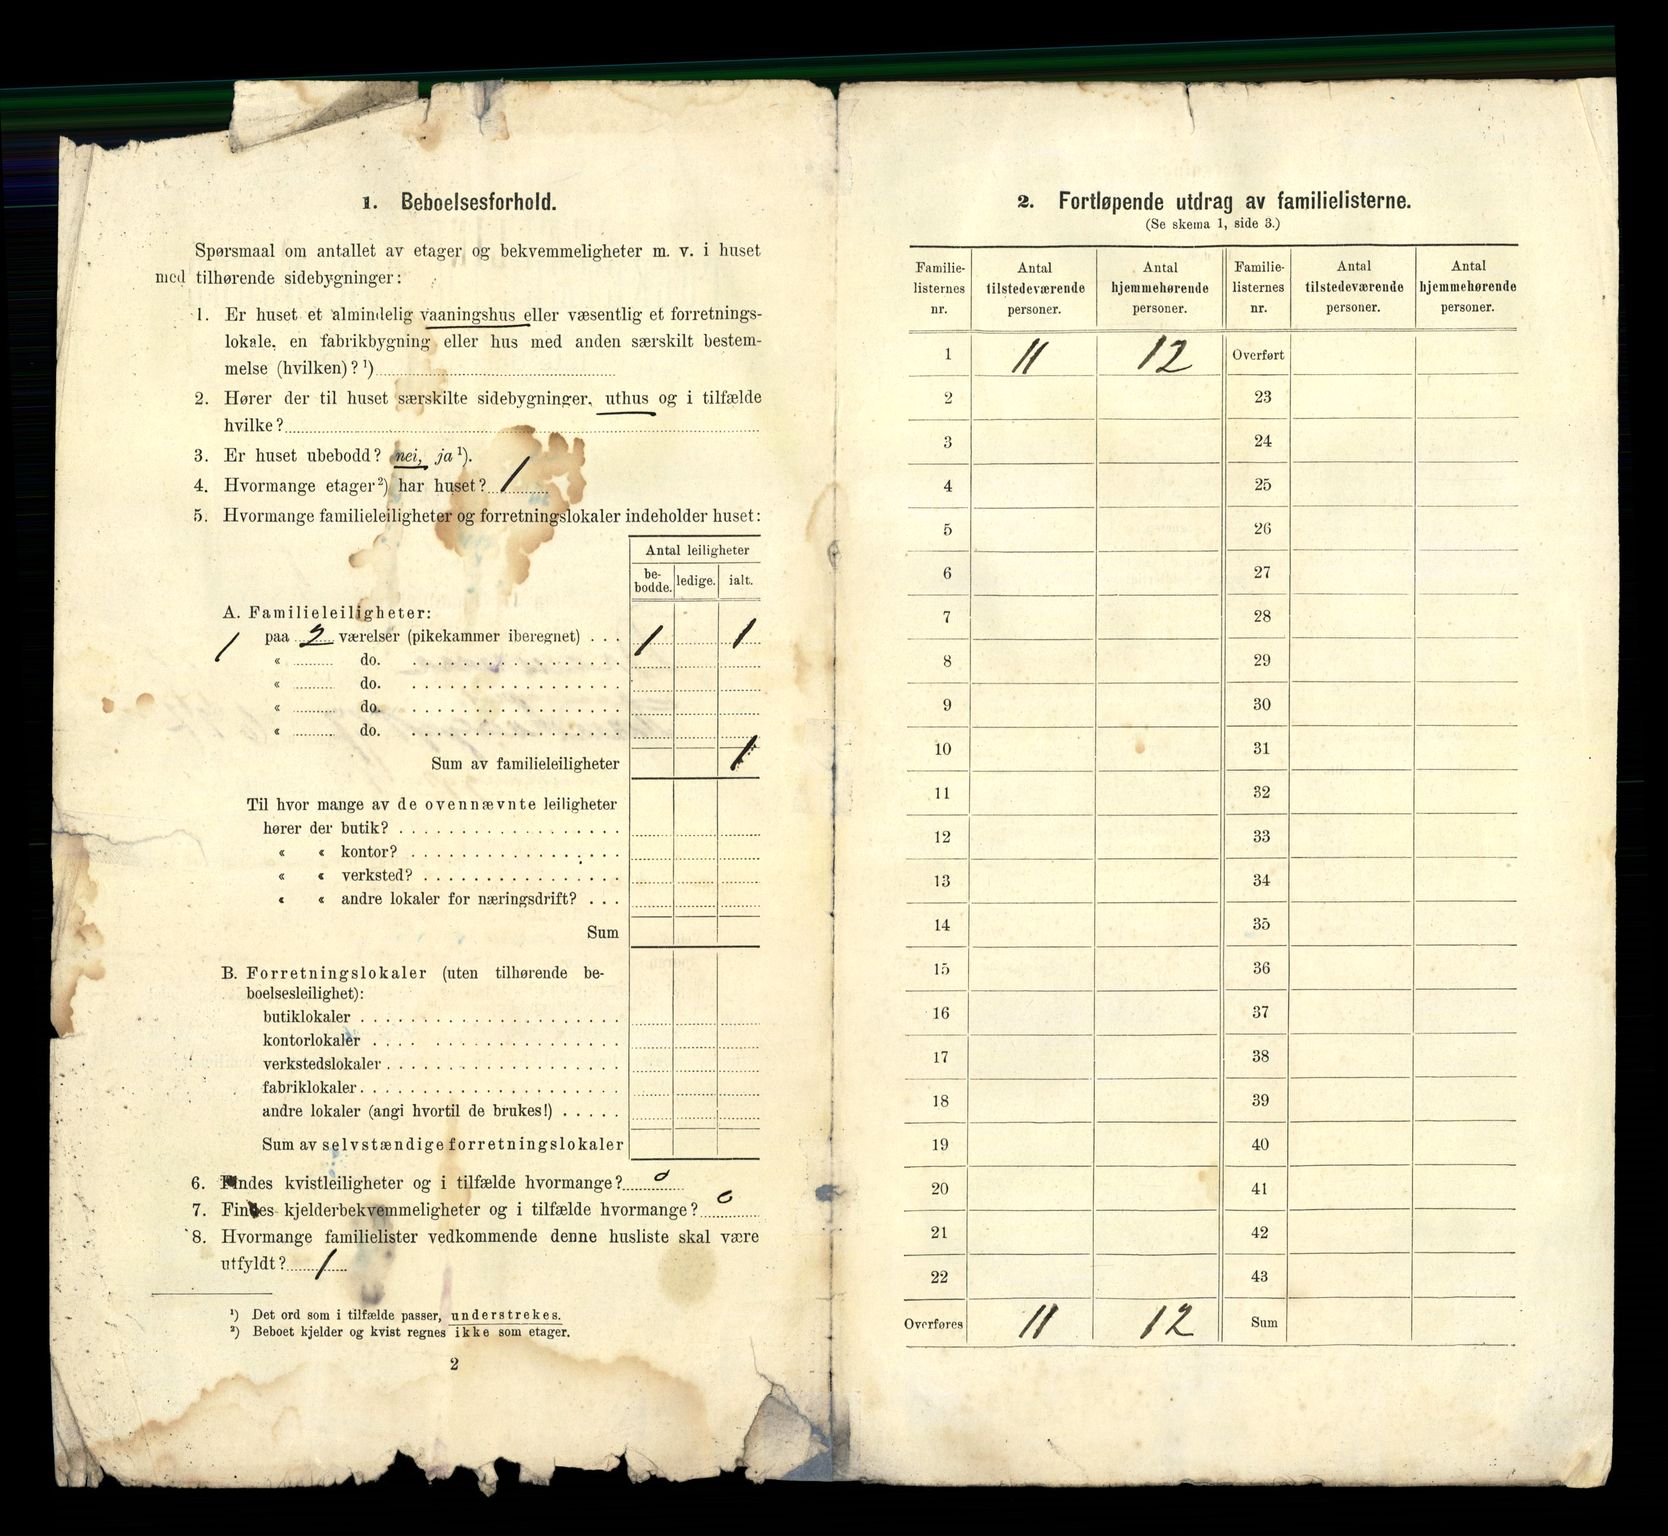 1. Beboelsesforhold.
Spørsmaal om antallet av etager og bekvemmeligheter m. v. i huset
med tilhørende sidebygninger:
1. Er huset et almindelig vaaningshus eller væsentlig et forretnings-
lokale, en fabrikbygning eller hus med anden særskilt bestem-
melse (hvilken)? ¹)
2. Hører der til huset særskilte sidebygninger, uthus og i tilfælde
hvilke?
3. Er huset ubebodd? nei, ja ¹).
4. Hvormange etager ²) har huset? 1
5. Hvormange familieleiligheter og forretningslokaler indeholder huset:
Antal leiligheter
be-
bodde. ledige. ialt.
A. Familieleiligheter:
1 paa 2 værelser (pikekammer iberegnet) . . . 1 1
« do.
« do.
« do.
« do.
Sum av familieleiligheter 1
Til hvor mange av de ovennævnte leiligheter
hører der butik?
« « kontor?
« « verksted?
« « andre lokaler for næringsdrift? . . .
Sum
B. Forretningslokaler (uten tilhørende be-
boelsesleilighet):
butiklokaler
kontorlokaler
verkstedslokaler
fabriklokaler
andre lokaler (angi hvortil de brukes!)
Sum av selvstændige forretningslokaler
6. Findes kvistleiligheter og i tilfælde hvormange? 0
7. Findes kjelderbekvemmeligheter og i tilfælde hvormange? 0
8. Hvormange familielister vedkommende denne husliste skal være
utfyldt? 1
¹) Det ord som i tilfælde passer, understrekes.
²) Beboet kjelder og kvist regnes ikke som etager.
2
2. Fortløpende utdrag av familielisterne.
(Se skema 1, side 3.)
Familie- Antal Antal Familie- Antal Antal
listernes tilstedeværende hjemmehørende listernes tilstedeværende hjemmehørende
nr. personer. personer. nr. personer. personer.
1 11 12 Overført
2 23
3 24
4 25
5 26
6 27
7 28
8 29
9 30
10 31
11 32
12 33
13 34
14 35
15 36
16 37
17 38
18 39
19 40
20 41
21 42
22 43
Overføres 11 12 Sum